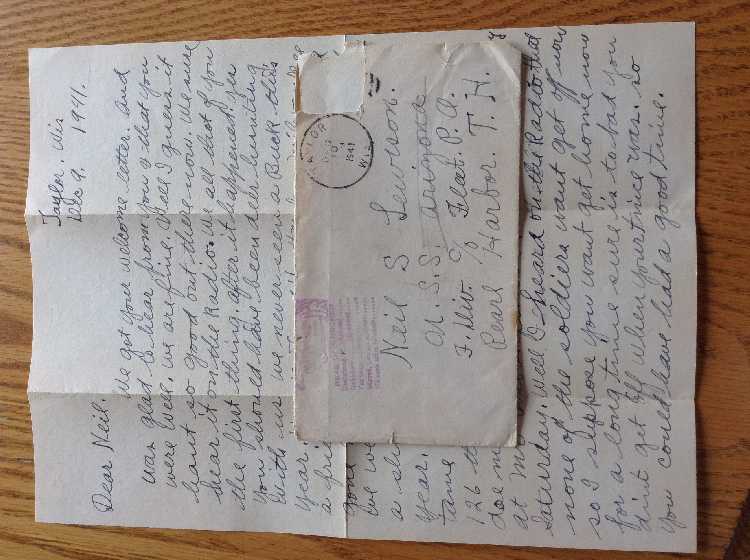 Taylor, Wis
Dec 9, 1941.
Dear Neil.
we got your welcome letter. and
was glad to hear from you & that you
were well, we are fine. Well I guess it
hant so good out there now. We sure
hear it on the Radio. we all that of you
the first thing. after it happened. yes
you should have been deer hunting
with us we never seen a Buck this
year.
a fri
gone
we we
a sh
year.
tame
126 t
Joe m
at M
Saturday. well I heard on the Radio that
none of the soldiers want get off now
so I suppose you want get home now
for a long time sure is to bad you
dint get off when yourtnice was. so
you could have had a good time.
TAYLOR
1941
WIS.
Neil S Lewison.
U.S.S. Arizona
F. Div. c/o Fleet. P.O.
Pearl Harbor T.H.